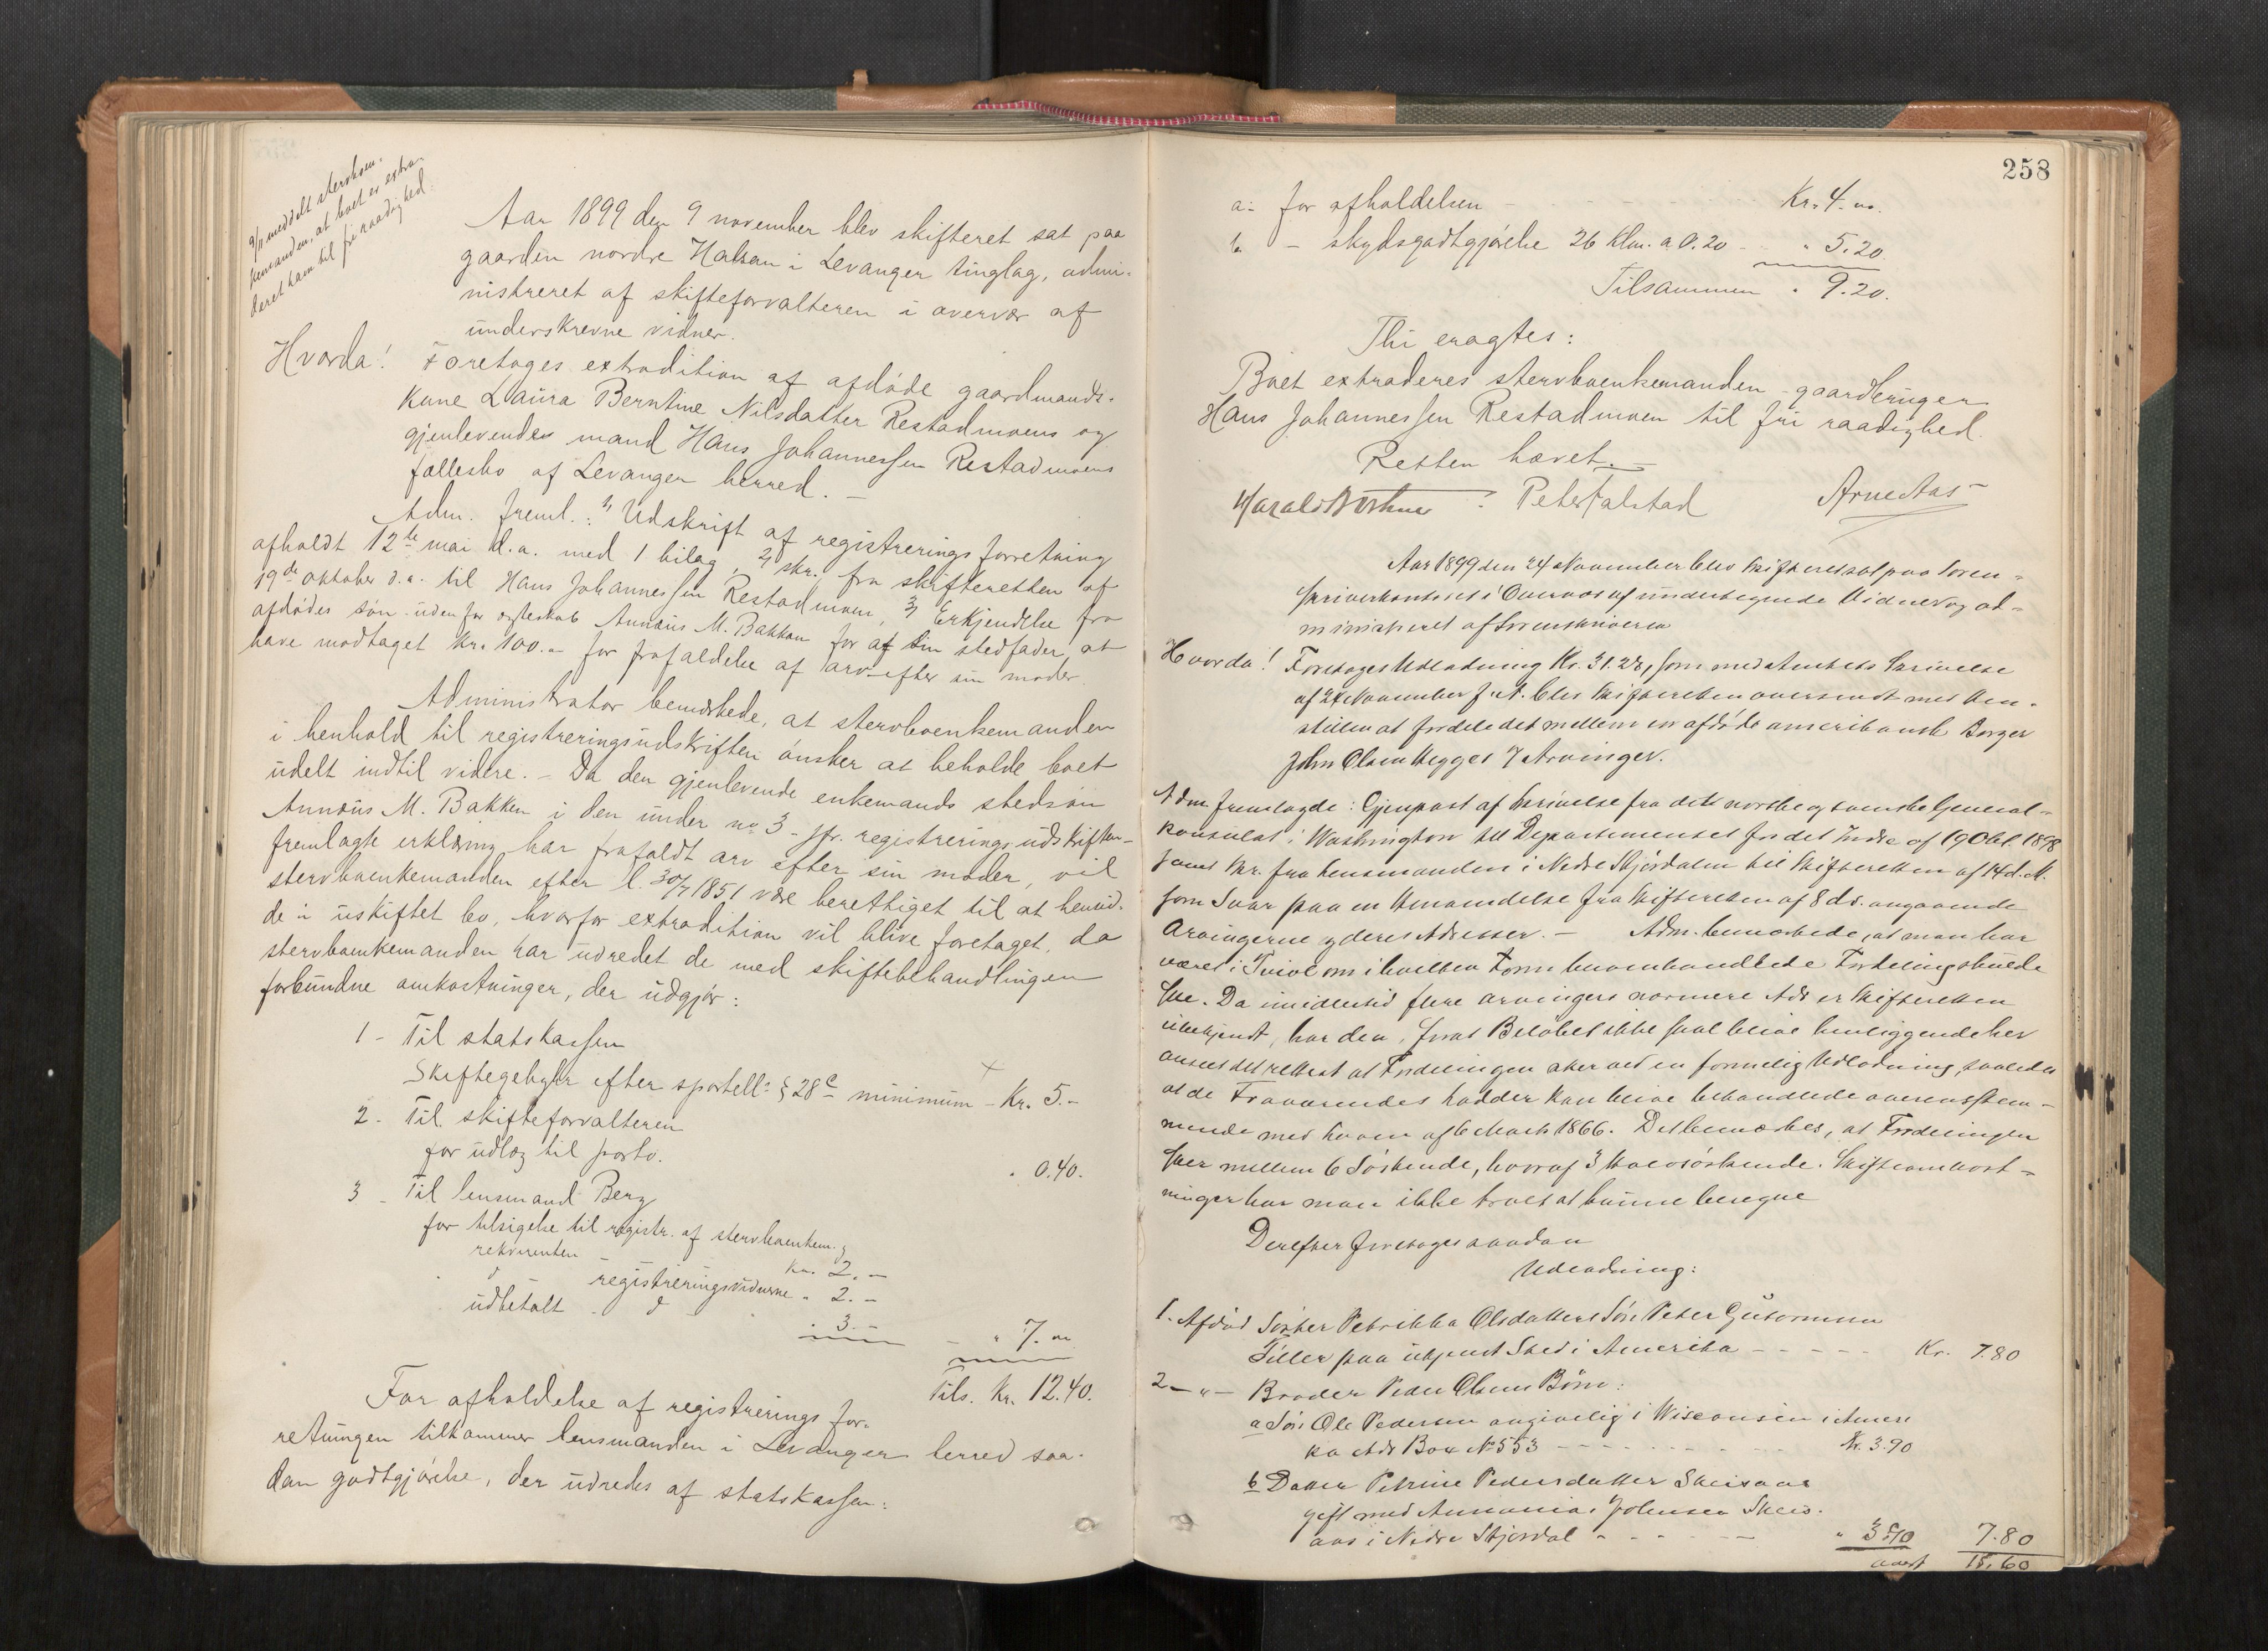 9/11 meddelt stervboen-
kemanden, at boet er extra-
deret ham til fri raadighed.
Aar 1899 den 9 november blev skifteret sat paa
gaarden nordre Halsan i Levanger tinglag, admi-
nistreret af skifteforvalteren i overvær af
underskrevne vidner.
Hvorda! Foretoges extradition af afdøde gaardmands-
kone Laura Berntine Nilsdatter Restadmoens og
gjenlevendes mand Hans Johannessen Restadmoens
fællesbo af Levanger herred. –
Adm. freml.: 1) Udskrift af registreringsforretning
afholdt 12te mai d.a. med 1 bilag, 2 skr. fra skifteretten af
19de oktober d.a. til Hans Johannessen Restadmoen, 3) Erkjendelse fra
afdødes søn udenfor egteskab Annæus M. Bakken for af sin stedfader at
have modtaget kr. 100.- for frafaldelse af arv efter sin moder.
Administrator bemærkede, at stervboenkemanden
i henhold til registreringsudskriften ønsker at beholde boet
udelt indtil videre. – Da den gjenlevende enkemands stedsøn
Annæus M. Bakken i den under no 3 – jfr. registreringsudskriften –
fremlagte erklæring har frafaldt arv efter sin moder, vil
stervboenkemanden efter l. 30/7 1851 være berettiget til at hensid-
de i uskiftet bo, hvorfor extradition vil blive foretaget, da
stervboenkemanden har udredet de med skiftebehandlingen
forbundne omkostninger, der udgjør:
1 - Til statskassen
Skiftegebyhr efter sportell: § 28 c minimum – Kr. 5.-
2 - Til skifteforvalteren
for udlæg til porto. " 0.40.
3 - Til lensmand Berg
for tilsigelse til registr. af stervboenkem. og
rekvirenten – Kr. 2.-
d registreringsvidnerne " 2.-
udbetalt - d " 3.- – " 7.
Tils. Kr. 12.40.
For afholdelse af registreringsfor-
retningen tilkommer lensmanden i Levanger herred saa-
dan godtgjørelse, der udredes af statskassen:
258
a: for afholdelsen – Kr. 4.
b. – skydsgodtgjørelse 26 klm. a 0.20 – " 5.20.
Tilsammen " 9.20.
Thi eragtes:
Boet extraderes stervboenkemanden – gaardbruger
Hans Johannessen Restadmoen til fri raadighed.
Retten hævet. –
Harald Peter Falstad Arne Aas
Aar 1899 den 24 November blev Skifteret sat paa Soren-
skriverkontoret i Overvær af undertegnede Vidner og ad-
ministreret af Sorenskriveren
Hvorda! Foretoges Udlodning Kr. 31.28, som med Amtets Skrivelse
af 2 November f. A. blev Skifteretten oversendt med Hen-
stillen at fordele det mellem en afdøde amerikansk Borger
John Olsen Hegges 7 Arvinger.
Adm fremlagde: Gjenpart af Skrivelse fra det norske og svenske General-
konsulat i Washington til Departementet for det Indre af 19 Okt. 1898
samt Skr. fra Lensmanden i Nedre Stjørdalen til Skifteretten af 14 d. M.
som Svar paa en Henvendelse fra Skifteretten af 8 ds. angaaende
Arvingerne og deres Adresser. – Adm. bemærkede, at man har
været i Tvivl om i hvilken Form Fordeling skulde
ske. Da imidlertid flere Arvingers nærmere Adr er Skifteretten
ubekjendt, har den, forat Beløbet ikke skal blive henliggende her
anseet det rettest at Fordelingen sker ved en formelig Udlodning, saaledes
at de Fraværendes lodder kan blive behandlede overensstem-
mende med Loven af 6 Marts 1866. Det bemærkes, at Fordelingen
sker mellem 6 Søskende, hvoraf 3 Halvsøskende. Skifteomkost-
ninger har man ikke troet at kunne beregne
Derefter foretoges saadan
Udlodning:
1. Afdød Søster Petrikka Olsdatters Søn Peter
Tiller paa ukjendt Sted i Amerika – – – – – Kr. 7.80
2 – " – Broder Peder Olsens Børn:
a Søn Ole Pedersen angivelig i Wisconsin i Ameri
ka Adr Box No 553 – – – – – – Kr. 3.90
b Datter Petrine Pedersdatter
gift med Johnsen
aas i Nedre Stjørdal – – – – " 3.90 7.80
overf 15.60